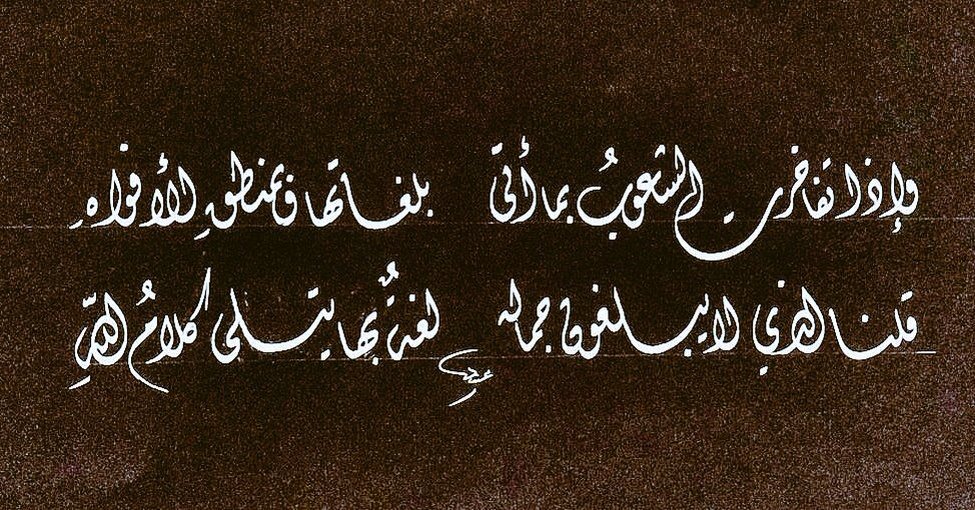 وإذا تفاخرت الشعوبُ بما أتى بلغاتها في منطقِ الأفواهِ
قلنا الذي لا يبلغون جماله لغةٌ بها يتلى كلامُ اللّهِ